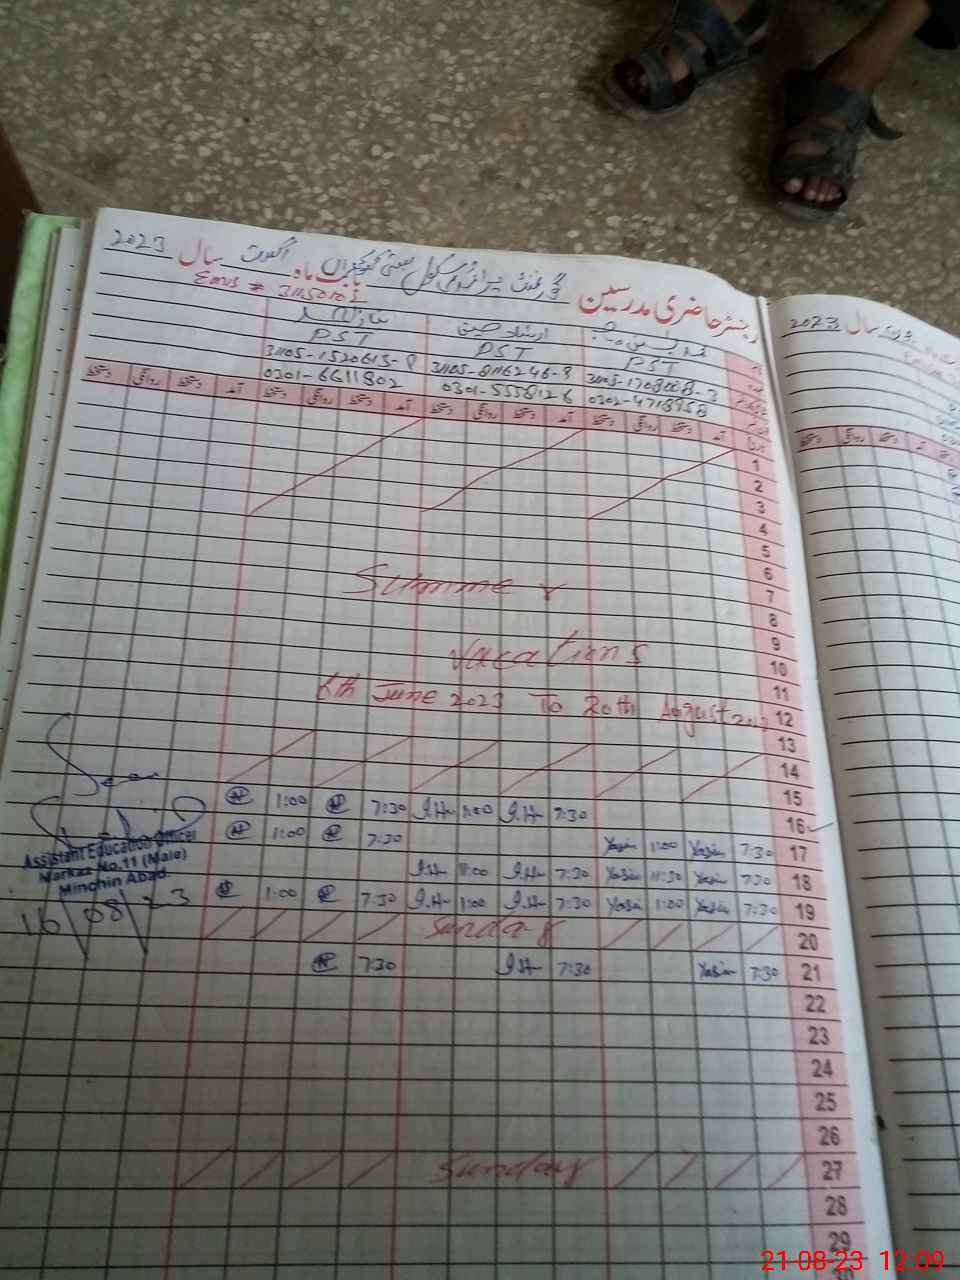 رجسٹر حاضری مدرسین گورنمنٹ پرائمری سکول بابت ماہ اگست سال 2023
Emis #
PST PST PST
31105-1520613-8 31105-8116246-9
0301-6611802 0301-5558126 0302-4718958
آمد دستخط روانگی دستخط آمد دستخط روانگی دستخط آمد دستخط روانگی دستخط آمد دستخط روانگی دستخط
1
2
3
4
5
6
Summer
7
8
9
Vacations
10
11
6th June 2023 To 20th August
12
13
14
15
1:00 7:30 I.H 1:00 I.H 7:30
16
1:00 7:30 Yasin 1:00 Yasin 7:30
17
I.H 11:00 I.H 7:30 Yasin 11:30 Yasin 7:30
18
1:00 7:30 I.H 1:00 I.H 7:30 Yasin 1:00 Yasin 7:30
19
Sunday
20
7:30 I.H 7:30 Yasin 7:30
21
22
23
24
25
26
Sunday
27
28
29
30
Assistant Education Officer
Markaz No.11 (Male)
Minchin Abad
16/08/23
2023 سال
دستخط روانگی دستخط
21-08-23 12:09